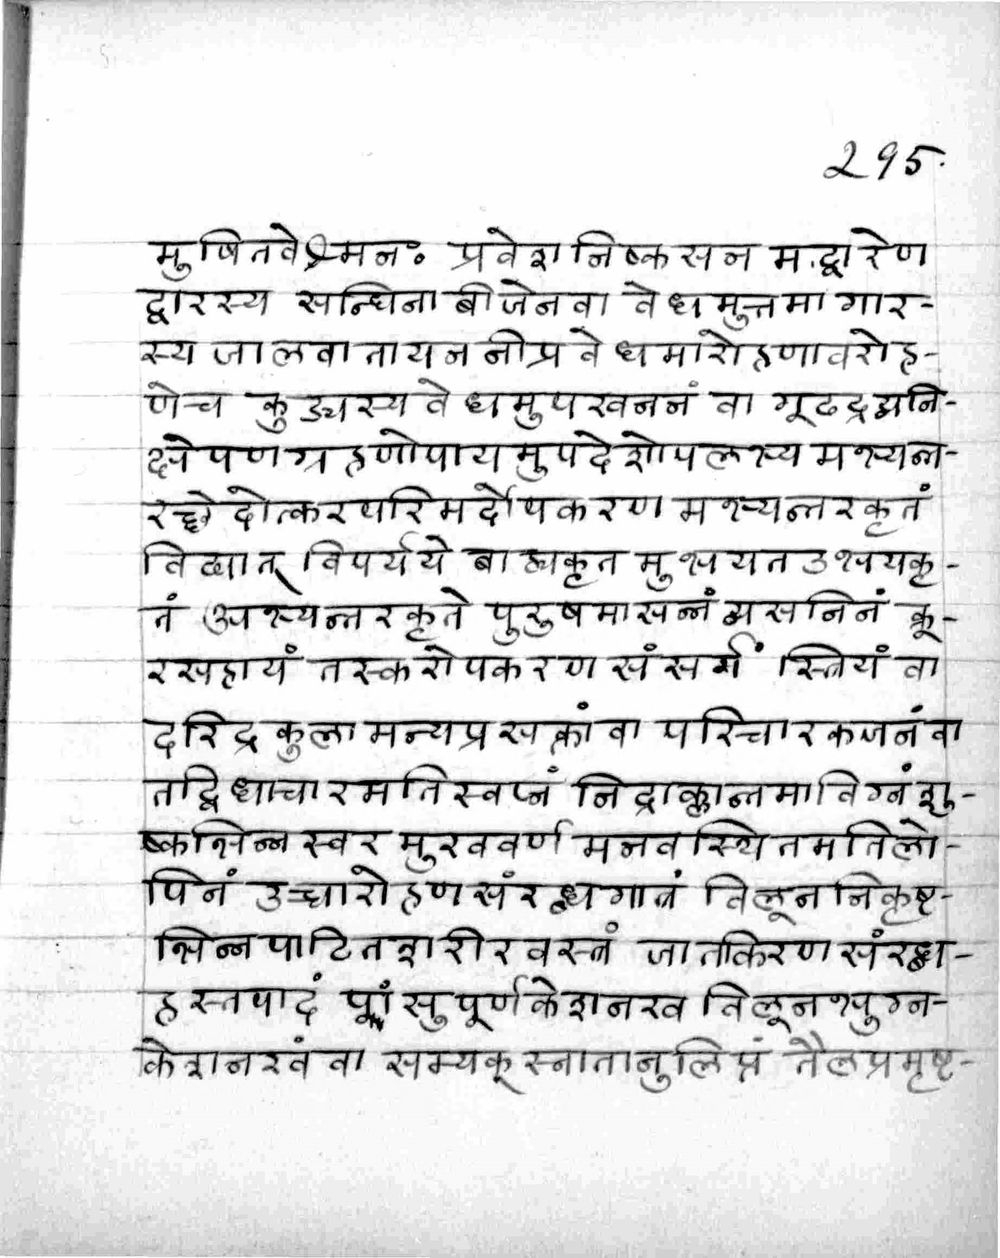 295.
मुषितवेश्मनः प्रवेशनिष्कसन मद्वारेण
द्वारस्य सन्धिना बीजेनवा वेधमुत्तमागार-
स्य जालवातायननीप्रवेधमारोहणावरोह-
णेच कुड्यस्य वेधमुपखननं वा गूढद्रव्यनि-
क्षेपणग्रहणोपायमुपदेशोपलभ्यमभ्यन्त-
रच्छेदोत्करपरिमर्दोपकरणमभ्यन्तरकृतं
विद्यात् विपर्यये बाह्यकृतमुभयत उभयकृ-
तं अभ्यन्तरकृते पुरुषमासन्नं व्यसनिनं क्रू-
रसहायं तस्करोपकरणसंसर्गं स्त्रियं वा
दरिद्रकुलामन्यप्रसक्तां वा परिचारकजनं वा
तद्विधाचारमतिस्वप्नं निद्राक्लान्तमाविग्नं शु-
ष्कभिन्नस्वरमुखवर्णमनवस्थितमतिलो-
पिनं उच्चारोहणसंरब्धगात्रं विलूननिकृष्ट-
भिन्नपाटितशरीरवस्त्रं जातकिरणसंरब्ध-
हस्तपादं पांसुपूर्णकेशनख विलूनभुग्न-
केशनखं वा सम्यक् स्नातानुलिप्तं तैलप्रमृष्ट-